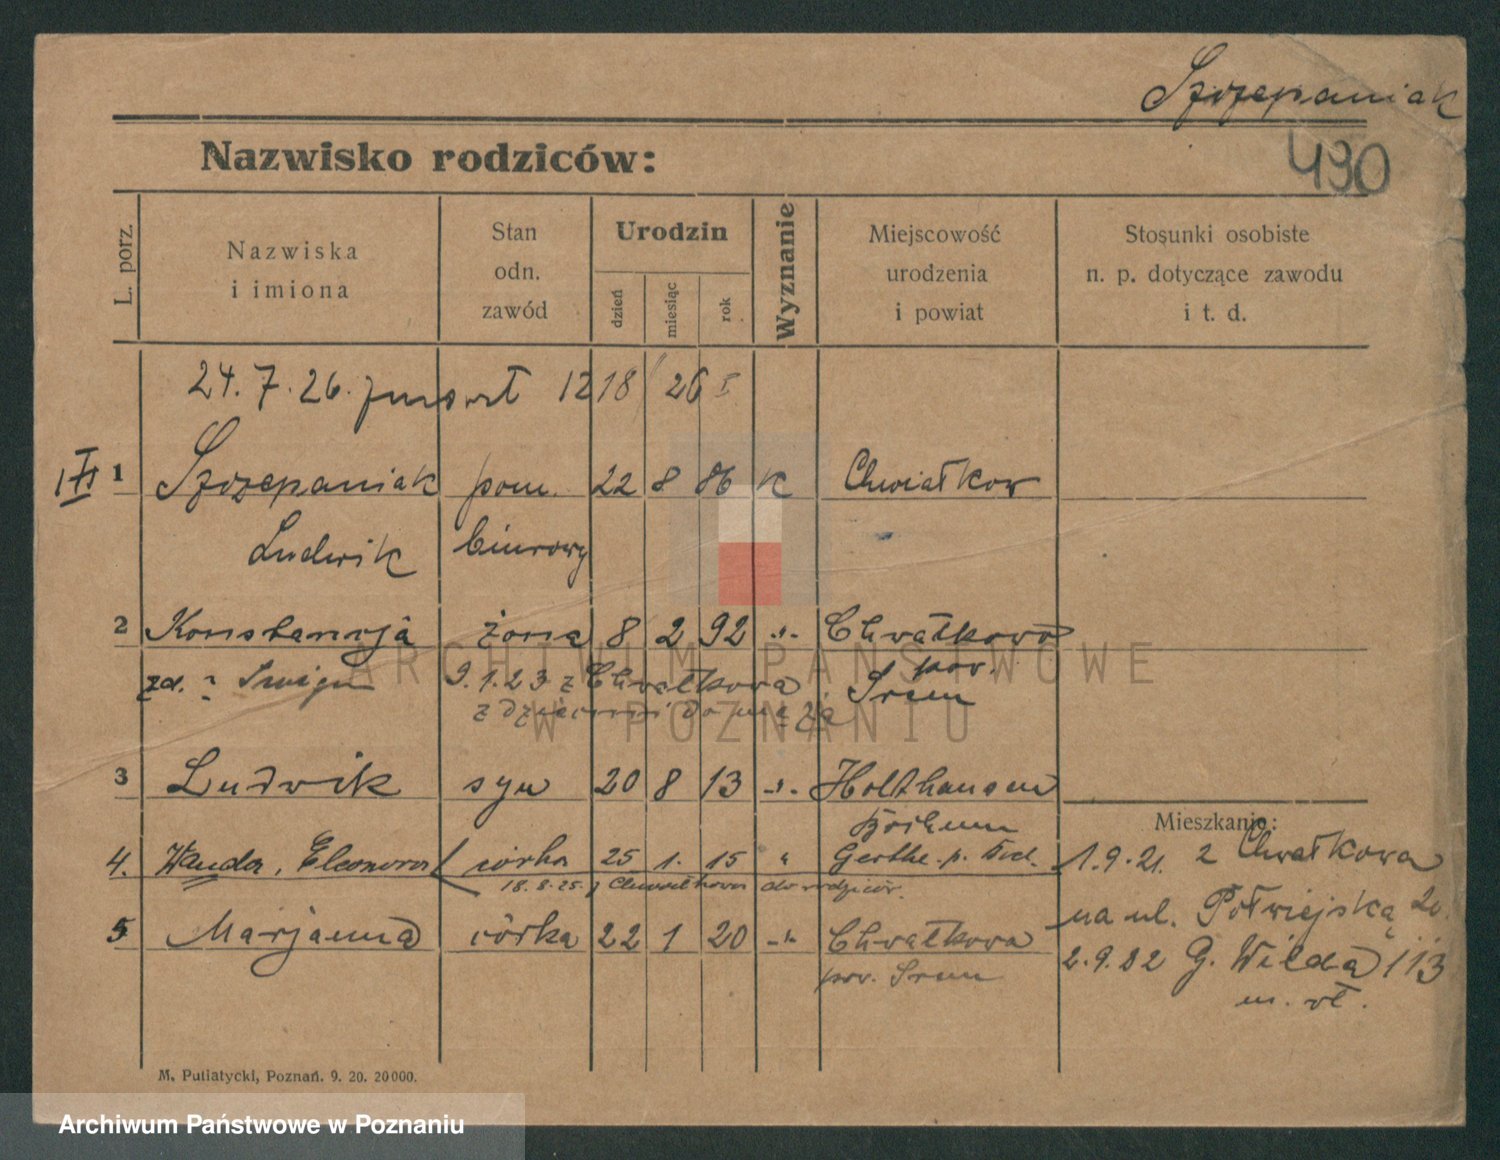 Szczepaniak
490
Nazwisko rodziców:
L. porz.
Nazwiska
i imiona
Stan
odn.
zawód
Urodzin
dzień
miesiąc
rok
Wyznanie
Miejscowość
urodzenia
i powiat
Stosunki osobiste
n. p. dotyczące zawodu
i t. d.
24. 7. 26. zmarł 1218/26
1 Szczepaniak pom. 22 8 86 K Chwiałkow
Ludwik biurowy
2 Konstancja żona 8 2 92 -"- Chwałkowo
zd. 9.1.23 z Chwałkowa pow. Srem
z dziećmi do męża
3 Ludwik syn 20 8 13 -"- Holthausen
Bochum
Mieszkanie:
4. Wanda, Eleonora córka 25 1. 15 " Gerthe 1.9.21. z Chwałkowa
18.8.25 z Chwałkowa do rodziców.
na ul. Półwiejską 20.
5 Marjanna córka 22 1 20 -"- Chwałkowo
pow. Srem
2.9.22 G. Wilda 113
m. wł.
M. Putiatycki, Poznań. 9. 20. 20000.
ARCHIWUM PAŃSTWOWE
W POZNANIU
Archiwum Państwowe w Poznaniu